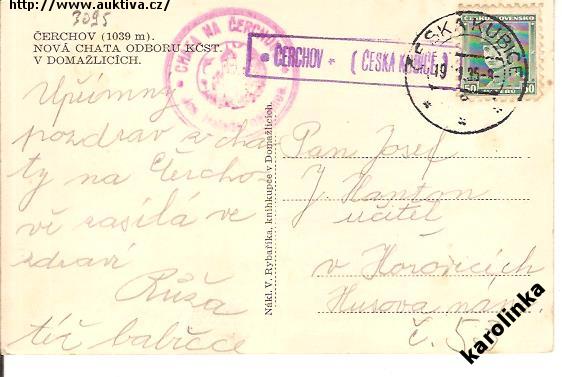 http://www.auktiva.cz/
3095
ČERCHOV (1039 m).
NOVÁ CHATA ODBORU KČST.
V DOMAŽLICÍCH.
CHATA NA ČERCHOVĚ
ČERCHOV * (ČESKÁ KUBICE)
ČESKÁ KUBICE
ČESKOSLOVENSKO
50
50
Upřímný
pozdrav z cha
ty na Čercho
vě zasílá ve
zdraví
Růža
též babičce
Nákl. V. Rybařika, knihkupce v Domažlicích.
Pan Josef
J. Hanton
učitel
v Horovicích
Husova nám.
č. 5
karolinka